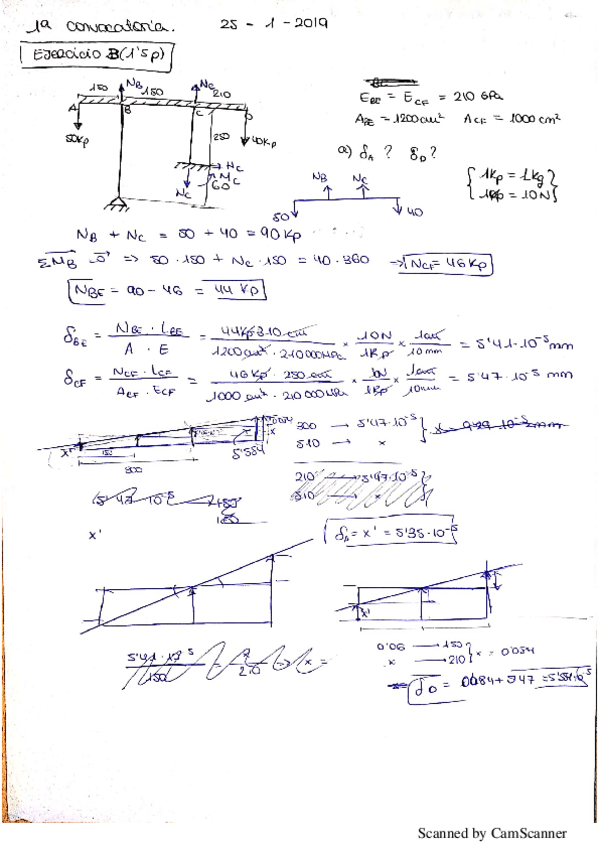 1ª convocatoria. 25 - 1 - 2019
EJERCICIO B (1'5p)
150 NB 150 NC 210
A B C D
50Kp 250 40Kp
HC
MC
NC 60
EBE = ECF = 210 GPa
ABE = 1200cm² ACF = 1000 cm²
a) δA ? δD ?
{ 1Kp = 1kg
1Kp = 10N }
NB NC
50 40
NB + NC = 50 + 40 = 90 Kp
ΣMB => 50·150 + NC·150 = 40·360 → NCF = 46 Kp
NBE = 90 - 46 = 44 Kp
δBE = NBE · LBE / A · E = 44Kp·310 cm / 1200cm² · 210000MPa × 10N / 1Kp × 1cm / 10mm = 5'41·10⁻⁵ mm
δCF = NCF · LCF / ACF · ECF = 46Kp · 250 cm / 1000 cm² · 210000MPa × 10N / 1Kp × 1cm / 10mm = 5'47·10⁻⁵ mm
300 → 5'47·10⁻⁵
510 → x } x = 9'29·10⁻⁵mm
x' 150 5'554 x
300
210 → 5'47·10⁻⁵
510 → x
x'
δA = x' = 5'35·10⁻⁵
x'
5'41·10⁻⁵ / 150 = x / 210 => x =
0'06 → 150
x → 210 } x = 0'084
δD = 0'084 + 5'47 = 5'554·10⁻⁵
Scanned by CamScanner